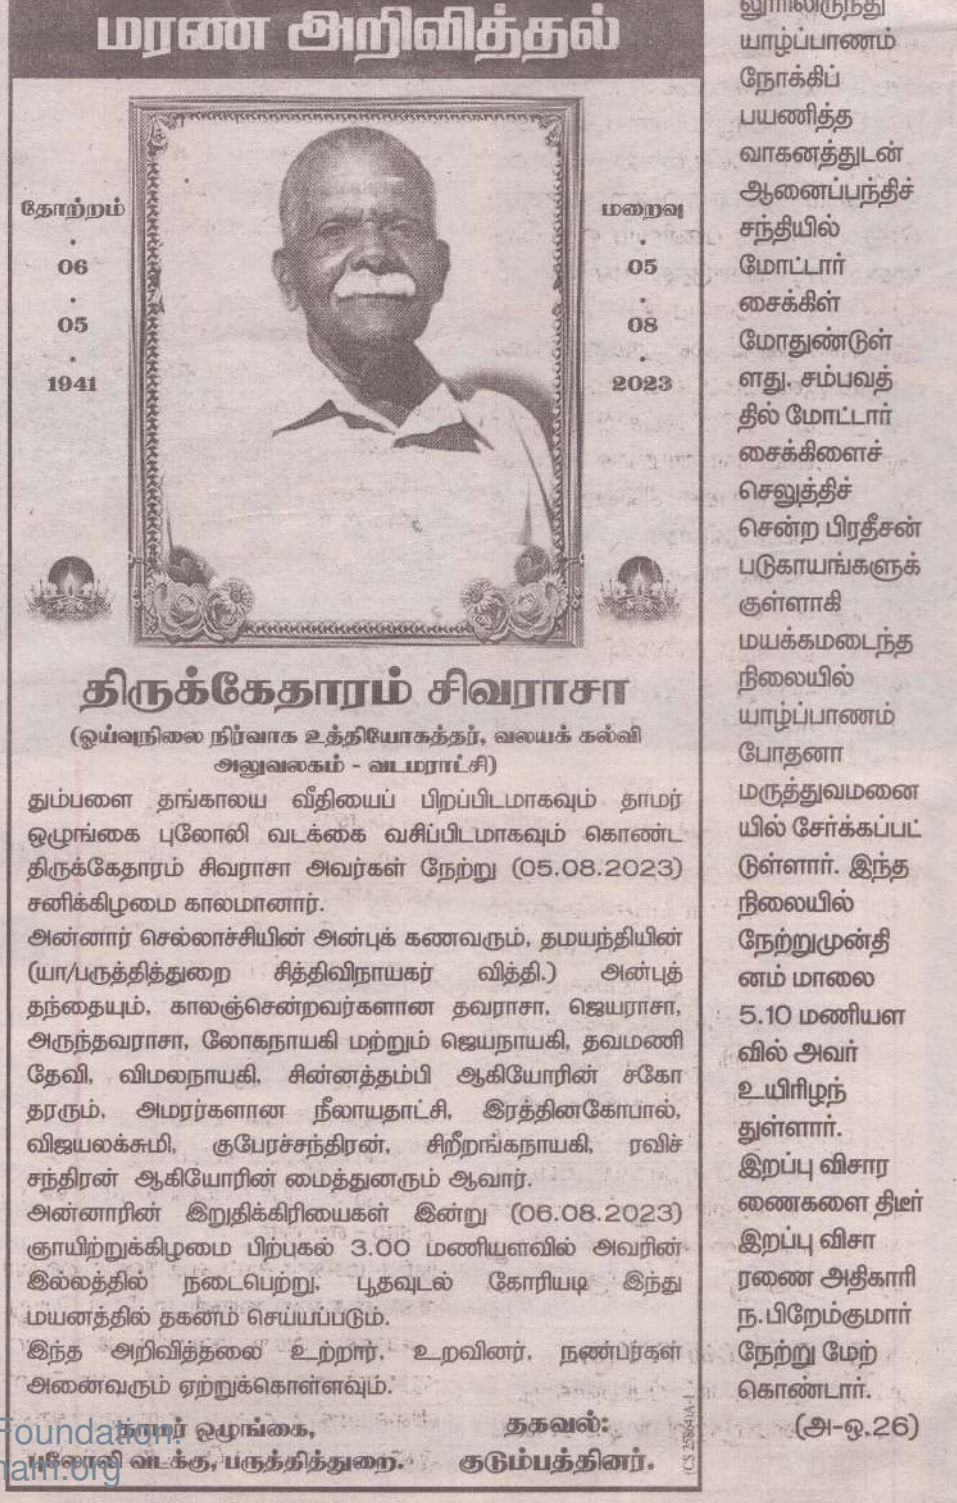 மரண அறிவித்தல்
தோற்றம்
06
05
1941
மறைவு
05
08
2023
திருக்கேதாரம் சிவராசா
(ஓய்வுநிலை நிர்வாக உத்தியோகத்தர், வலயக் கல்வி
அலுவலகம் - வடமராட்சி)
தும்பளை தங்காலய வீதியைப் பிறப்பிடமாகவும் தாமர்
ஒழுங்கை புலோலி வடக்கை வசிப்பிடமாகவும் கொண்ட
திருக்கேதாரம் சிவராசா அவர்கள் நேற்று (05.08.2023)
சனிக்கிழமை காலமானார்.
அன்னார் செல்லாச்சியின் அன்புக் கணவரும், தமயந்தியின்
(யா/பருத்தித்துறை சித்திவிநாயகர் வித்தி.) அன்புத்
தந்தையும், காலஞ்சென்றவர்களான தவராசா, ஜெயராசா,
அருந்தவராசா, லோகநாயகி மற்றும் ஜெயநாயகி, தவமணி
தேவி, விமலநாயகி, சின்னத்தம்பி ஆகியோரின் சகோ
தரரும், அமரர்களான நீலாயதாட்சி, இரத்தினகோபால்,
விஜயலக்சுமி, குபேரச்சந்திரன், சிறீறங்கநாயகி, ரவிச்
சந்திரன் ஆகியோரின் மைத்துனரும் ஆவார்.
அன்னாரின் இறுதிக்கிரியைகள் இன்று (06.08.2023)
ஞாயிற்றுக்கிழமை பிற்பகல் 3.00 மணியளவில் அவரின்
இல்லத்தில் நடைபெற்று, பூதவுடல் கோரியடி இந்து
மயனத்தில் தகனம் செய்யப்படும்.
இந்த அறிவித்தலை உற்றார், உறவினர், நண்பர்கள்
அனைவரும் ஏற்றுக்கொள்ளவும்.
தாமர் ஒழுங்கை,
புலோலி வடக்கு, பருத்தித்துறை.
தகவல்:
குடும்பத்தினர்.
Foundation.
ham.org
லூரிலிருந்து
யாழ்ப்பாணம்
நோக்கிப்
பயணித்த
வாகனத்துடன்
ஆனைப்பந்திச்
சந்தியில்
மோட்டார்
சைக்கிள்
மோதுண்டுள்
ளது. சம்பவத்
தில் மோட்டார்
சைக்கிளைச்
செலுத்திச்
சென்ற பிரதீசன்
படுகாயங்களுக்
குள்ளாகி
மயக்கமடைந்த
நிலையில்
யாழ்ப்பாணம்
போதனா
மருத்துவமனை
யில் சேர்க்கப்பட்
டுள்ளார். இந்த
நிலையில்
நேற்றுமுன்தி
னம் மாலை
5.10 மணியள
வில் அவர்
உயிரிழந்
துள்ளார்.
இறப்பு விசார
ணைகளை திடீர்
இறப்பு விசா
ரணை அதிகாரி
ந.பிறேம்குமார்
நேற்று மேற்
கொண்டார்.
(அ-ஒ.26)